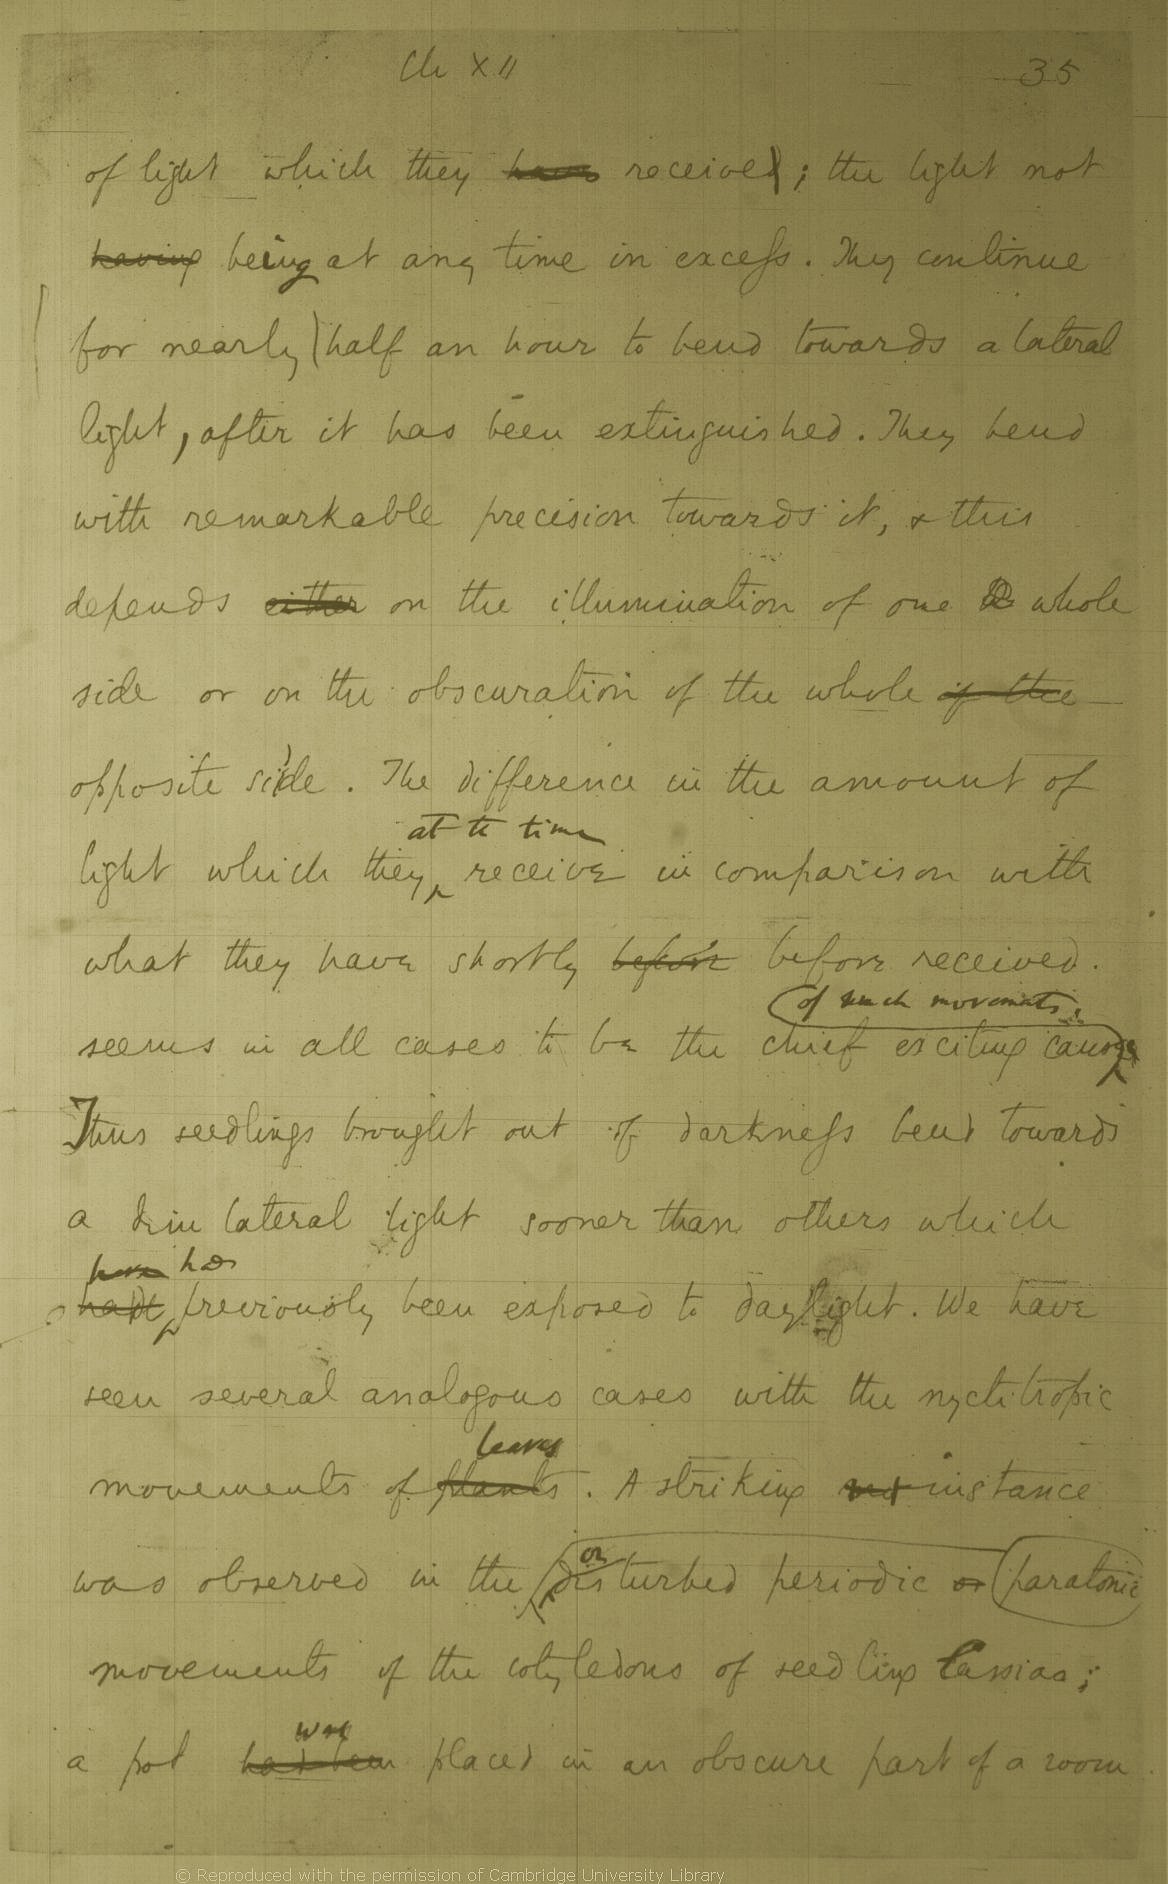 Ch XII 35
of light which they have received; the light not
having being at any time in excess. They continue
for nearly half an hour to bend towards a lateral
light, after it has been extinguished. They bend
with remarkable precision towards it, & this
depends either on the illumination of one whole
side or on the obscuration of the whole of the
opposite side. The difference in the amount of
at the time
light which they receive in comparison with
what they have shortly before before received.
of such movements.
seems in all cases to be the chief exciting cause
Thus seedlings brought out of darkness bend towards
a dim lateral light sooner than others which
have had
had previously been exposed to daylight. We have
seen several analogous cases with the nyctitropic
leaves
movements of plants. A striking instance
or
was observed in the disturbed periodic or paratonic
movements of the cotyledons of seedling Cassias;
was
a pot had been placed in an obscure part of a room
© Reproduced with the permission of Cambridge University Library